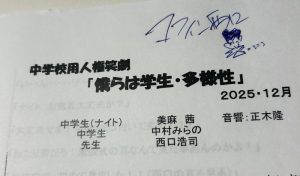 中学校用人権笑劇
「僕らは学生・多様性」
2025・12月
中学生(ナイト) 美麻 茜 音響:正木隆
中学生 中村みらの
先生 西口浩司